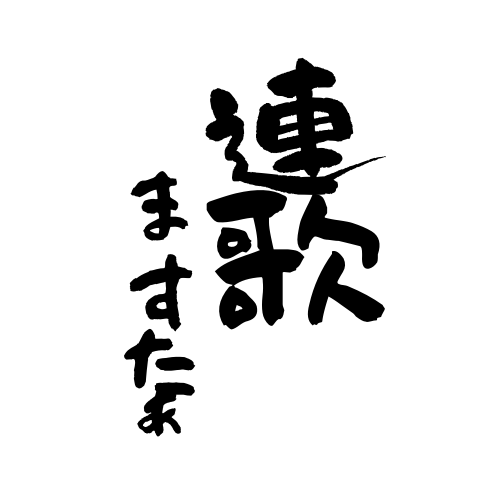 連歌
ますたぁ